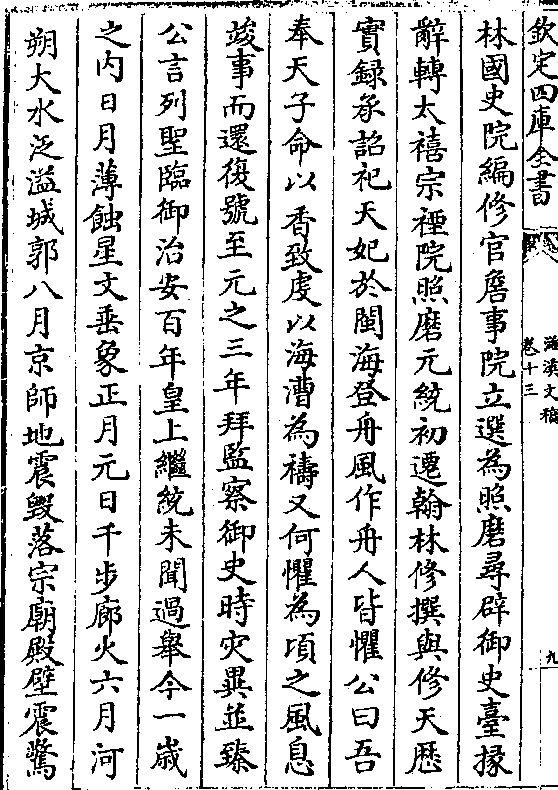 欽定四庫全書
滋溪文稿
卷十三
九
林國史院編修官詹事院立選為照磨尋辟御史臺掾
辭轉太禧宗禋院照磨元統初遷翰林修撰與修天厯
實録承詔祀天妃於閩海登舟風作舟人皆懼公曰吾
奉天子命以香致䖍以海漕為禱又何懼為頃之風息
竣事而還復號至元之三年拜監察御史時灾異並臻
公言列聖臨御治安百年皇上繼統未聞過舉今一歳
之内日月薄蝕星文垂象正月元日千步廊火六月河
朔大水泛溢城郭八月京師地震毁落宗廟殿壁震驚